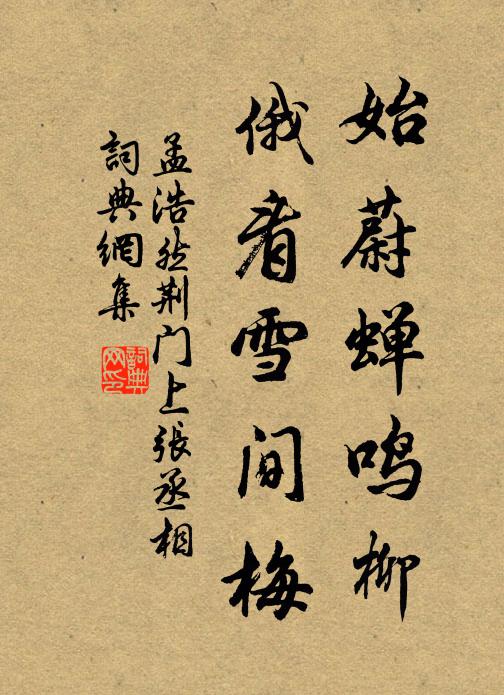 始蔚蝉鸣柳
俄看雪间梅
孟浩然荆门上張丞相
詞典網集
詞典网印